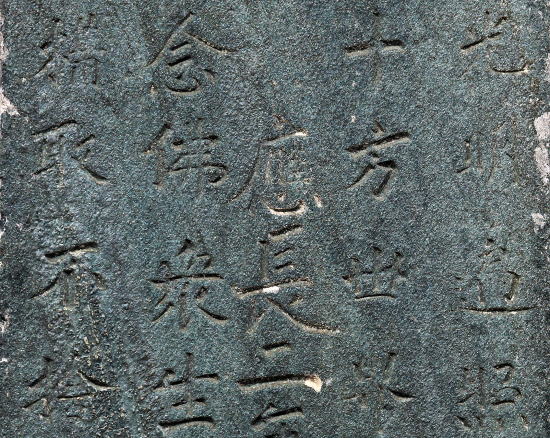 光明遍照
十方世界
應長二年
念佛衆生
摂取不捨